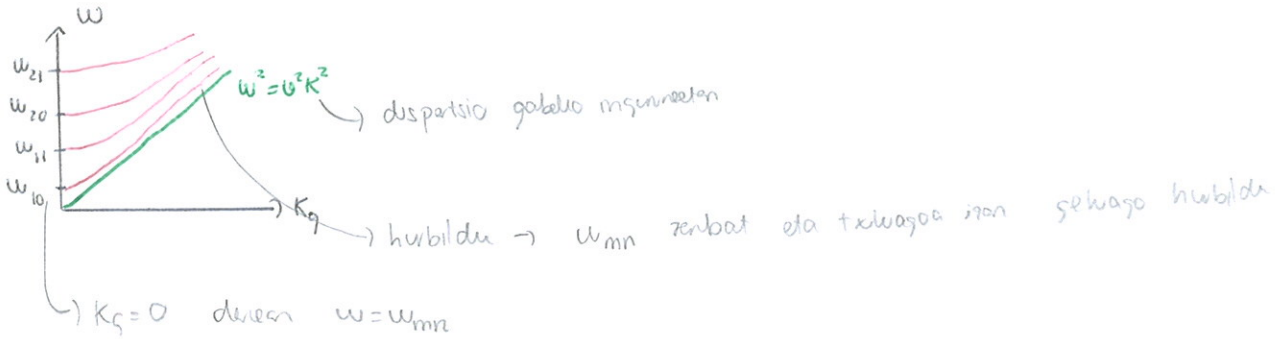 ω
ω₂₁
ω₂₀
ω₁₁
ω₁₀
ω² = υ²K²
dispertsio gabeko inguruneetan
Kg
hurbildu → ωmn zenbat eta txikiagoa izan gehiago hurbildu
Kg = 0 denean ω = ωmn